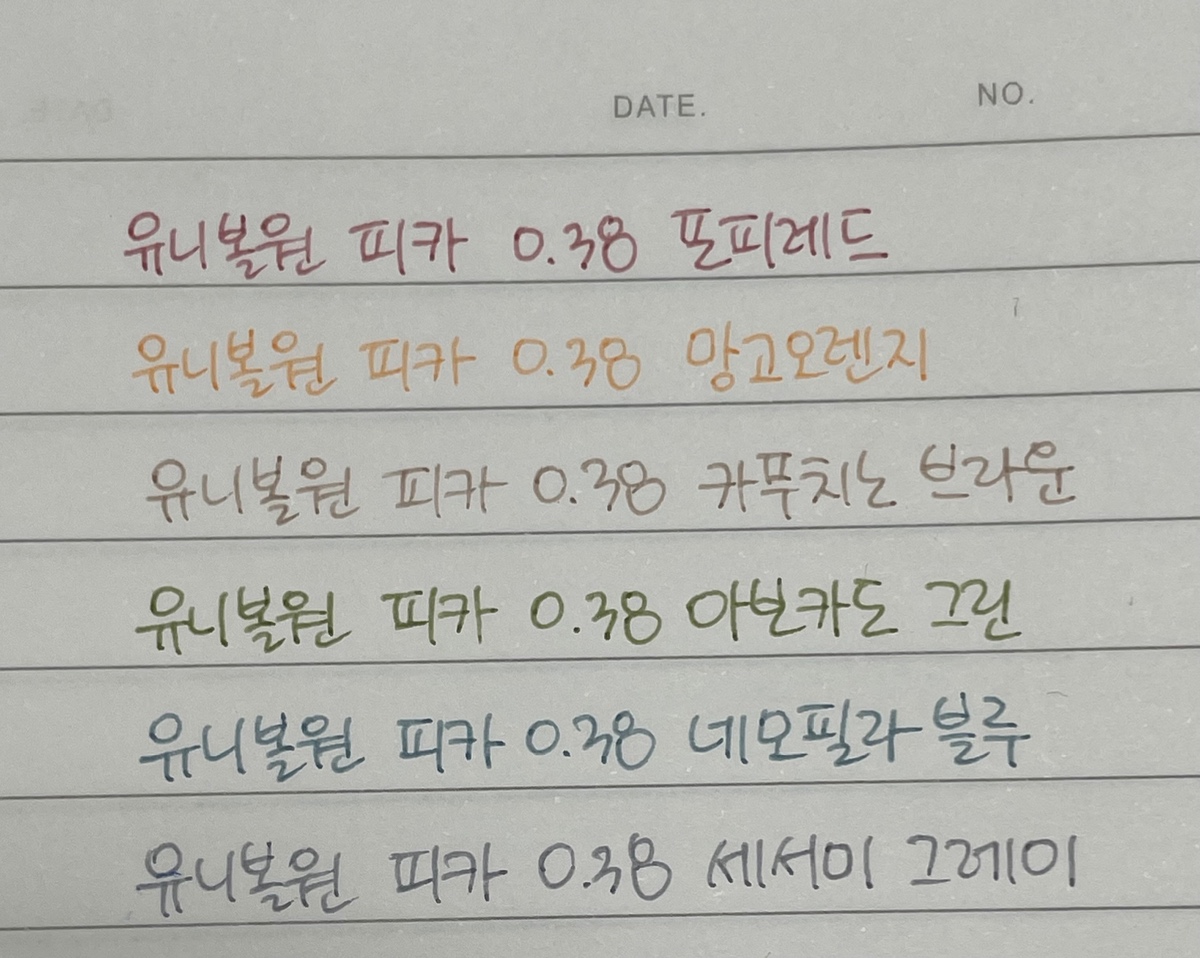 DATE. NO.
유니볼원 피카 0.38 포피레드
유니볼원 피카 0.38 망고오렌지
유니볼원 피카 0.38 카푸치노 브라운
유니볼원 피카 0.38 아보카도 그린
유니볼원 피카 0.38 네모필라 블루
유니볼원 피카 0.38 세서미 그레이